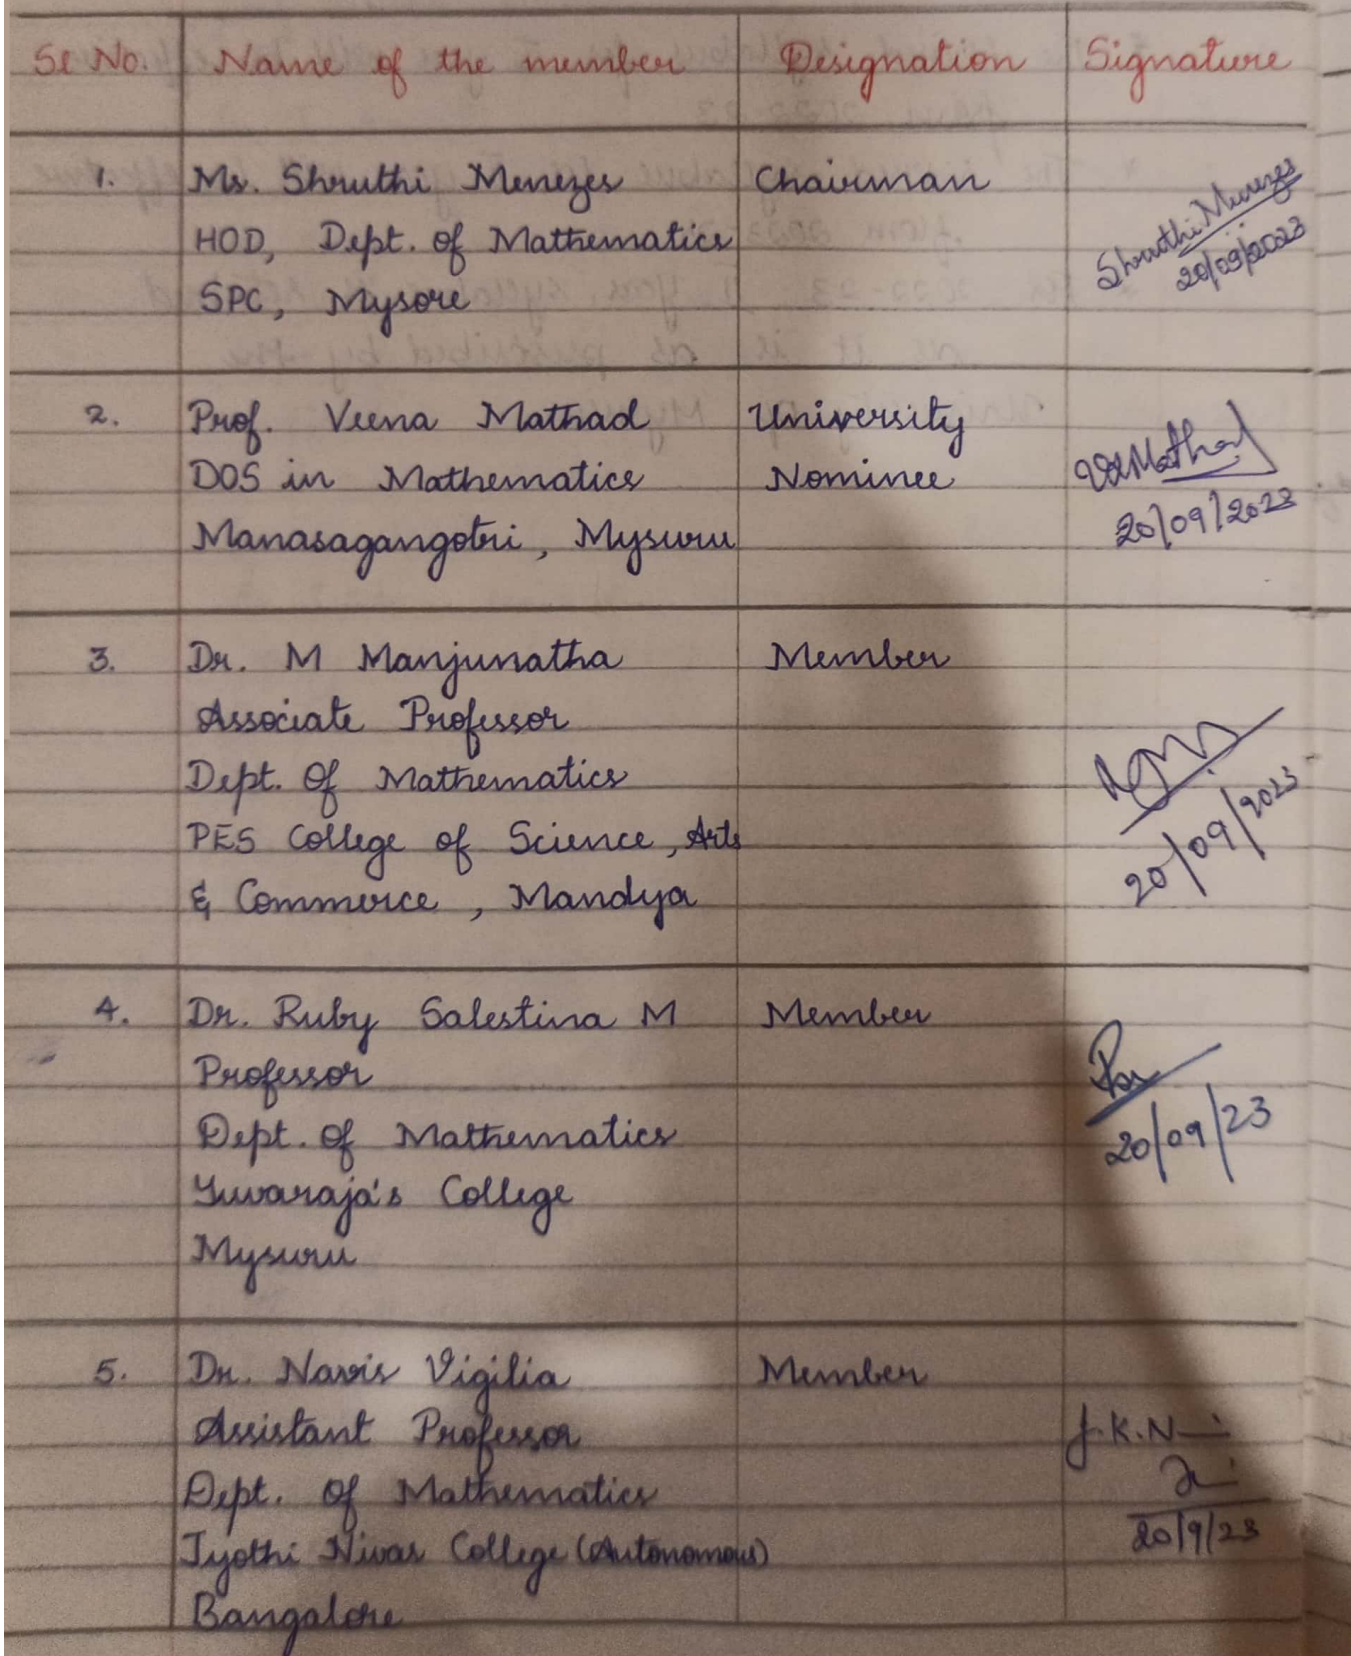 Sl No. Name of the member Designation Signature
1. Ms. Shruthi Menezes Chairman
HOD, Dept. of Mathematics
SPC, Mysore
Shruthi Menezes
20/09/2023
2. Prof. Veena Mathad University
DOS in Mathematics Nominee
Manasagangotri, Mysuru
20/09/2023
3. Dr. M Manjunatha Member
Associate Professor
Dept. Of Mathematics
PES College of Science, Arts
& Commerce, Mandya
20/09/2023
4. Dr. Ruby Salestina M Member
Professor
Dept. of Mathematics
Yuvaraja's College
Mysuru
20/09/23
5. Dr. Navis Vigilia Member
Assistant Professor
Dept. Of Mathematics
Jyothi Nivas College (Autonomous)
Bangalore
J.K.N
20/9/23